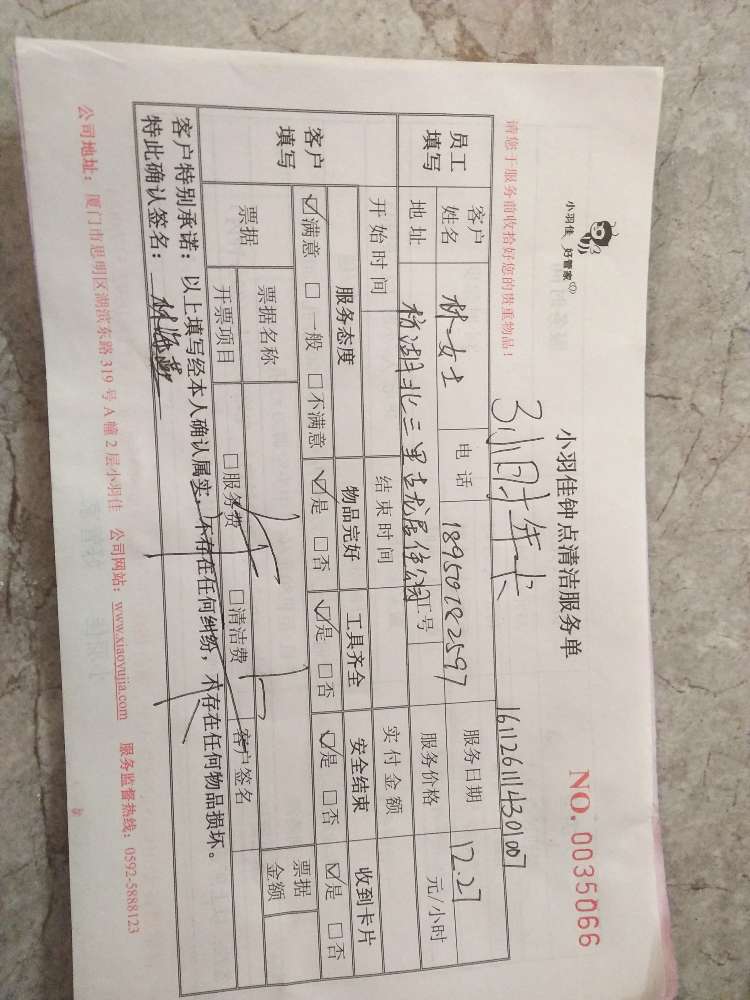 小羽佳 好管家
小羽佳钟点清洁服务单
NO. 0035066
请您于服务前收拾好您的贵重物品！
3小时年卡
1611261114301007
员工填写
客户姓名 林女士 电话 18950182597 服务日期 12.27
地址 工号 服务价格 元/小时
开始时间 结束时间 实付金额
客户填写
服务态度 物品完好 工具齐全 安全结束 收到卡片
☑满意 □一般 □不满意 ☑是 □否 ☑是 □否 ☑是 □否 ☑是 □否
票据 票据名称 票据金额
开票项目 □服务费 □清洁费 客户签名
客户特别承诺：以上填写经本人确认属实，不存在任何纠纷，不存在任何物品损坏。
特此确认签名：
公司地址：厦门市思明区湖滨东路 319 号 A 幢 2 层小羽佳 公司网站：www.xiaoyujia.com 服务监督热线：0592-5888123